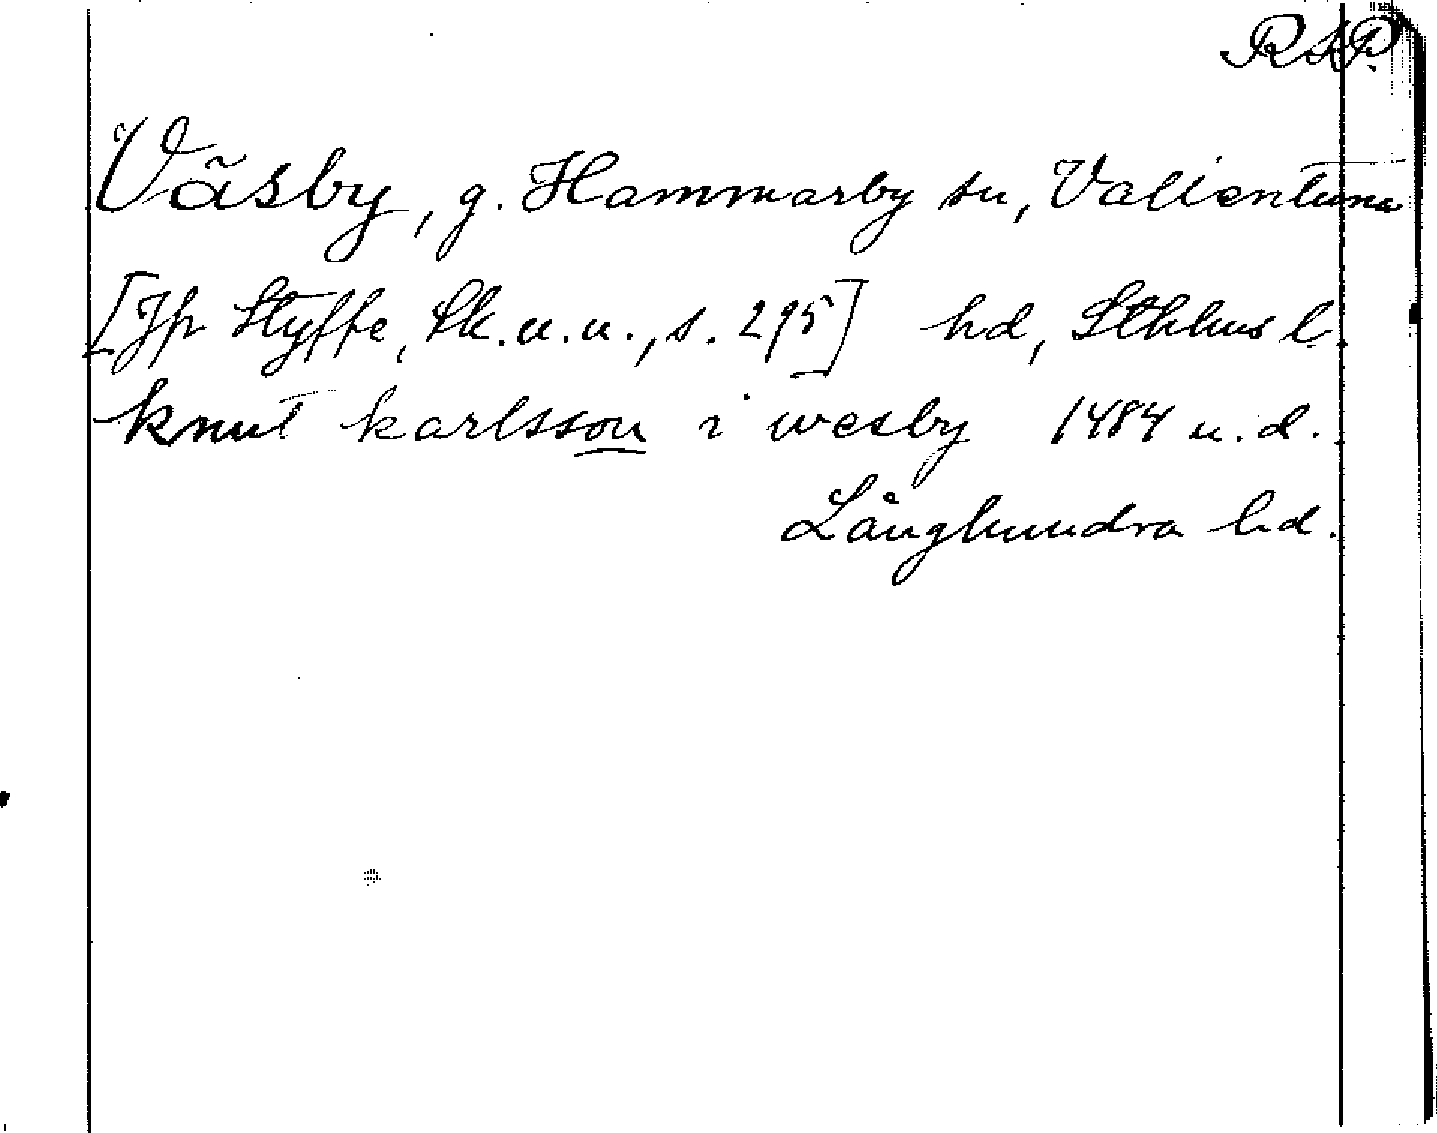 RAP.
Väsby, g. Hammarby sn, Vallentuna
[Jfr Styffe, Sk.u.u., s. 295] hd, Sthlms l.
knut karlsson i wesby 1484 u.d.
Långhundra hd.